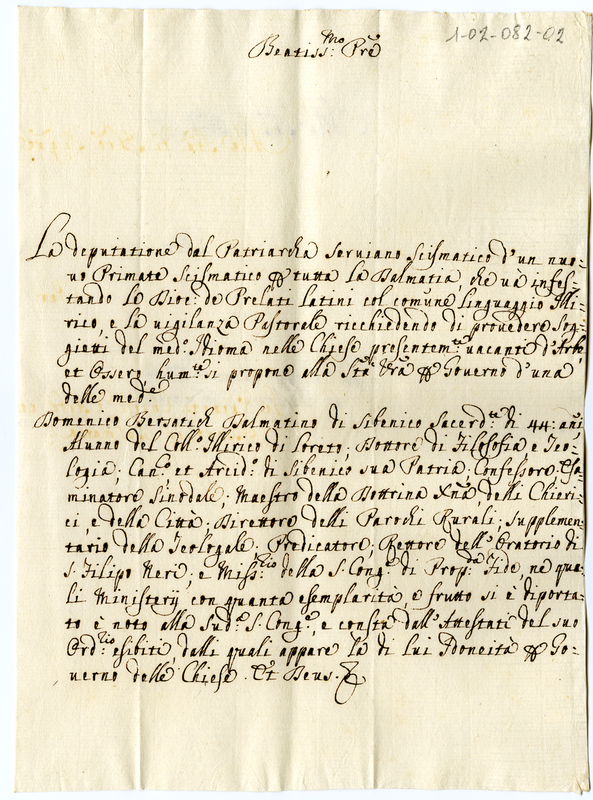 1-02-082-02
Beatiss:mo Pre
La deputatione dal Patriarcha Serviano Scismatico d'un nuo=
vo Primate Scismatico p tutta la Dalmatia, che và infes=
tando le Dioc: de Prelati Latini col comune linguaggio Illi=
rico, e la vigilanza Pastorale ricchiedendo di provedere Sog=
gietti del med:o Idioma nelle Chiese presentem:te vacanti d'Arbe,
et Ossero, hum:te si propone alla Sta Vra p Governo d'una
delle med:e
Domenico Bersatich Dalmatino di Sibenico Sacerd:te di 44: añi
Alunno del Coll:o Illirico di Loreto; Dottore di Filosofia e Teo=
logia; Can:o et Arcid:o di Sibenico sua Patria; Confessore; Esa=
minatore Sinodale; Maestro della Dottrina Xña, delli Chieri=
ci, e della Città; Direttore delli Parochi Rurali; supplemen=
tario della Teologale; Predicatore; Rettore dell'Oratorio di
S. Filipo Neri; e Miss:rio della S. Cong:e di Prop:da Fide, ne qua=
li Ministerij con quanta esemplarità e frutto si è diporta=
to è noto alla Sud:a S. Cong:e, e consta dall'Attestati del suo
Ord:rio esibiti, dalli quali appare la di lui Idoneità p Go=
verno delle Chiese. Et Deus.